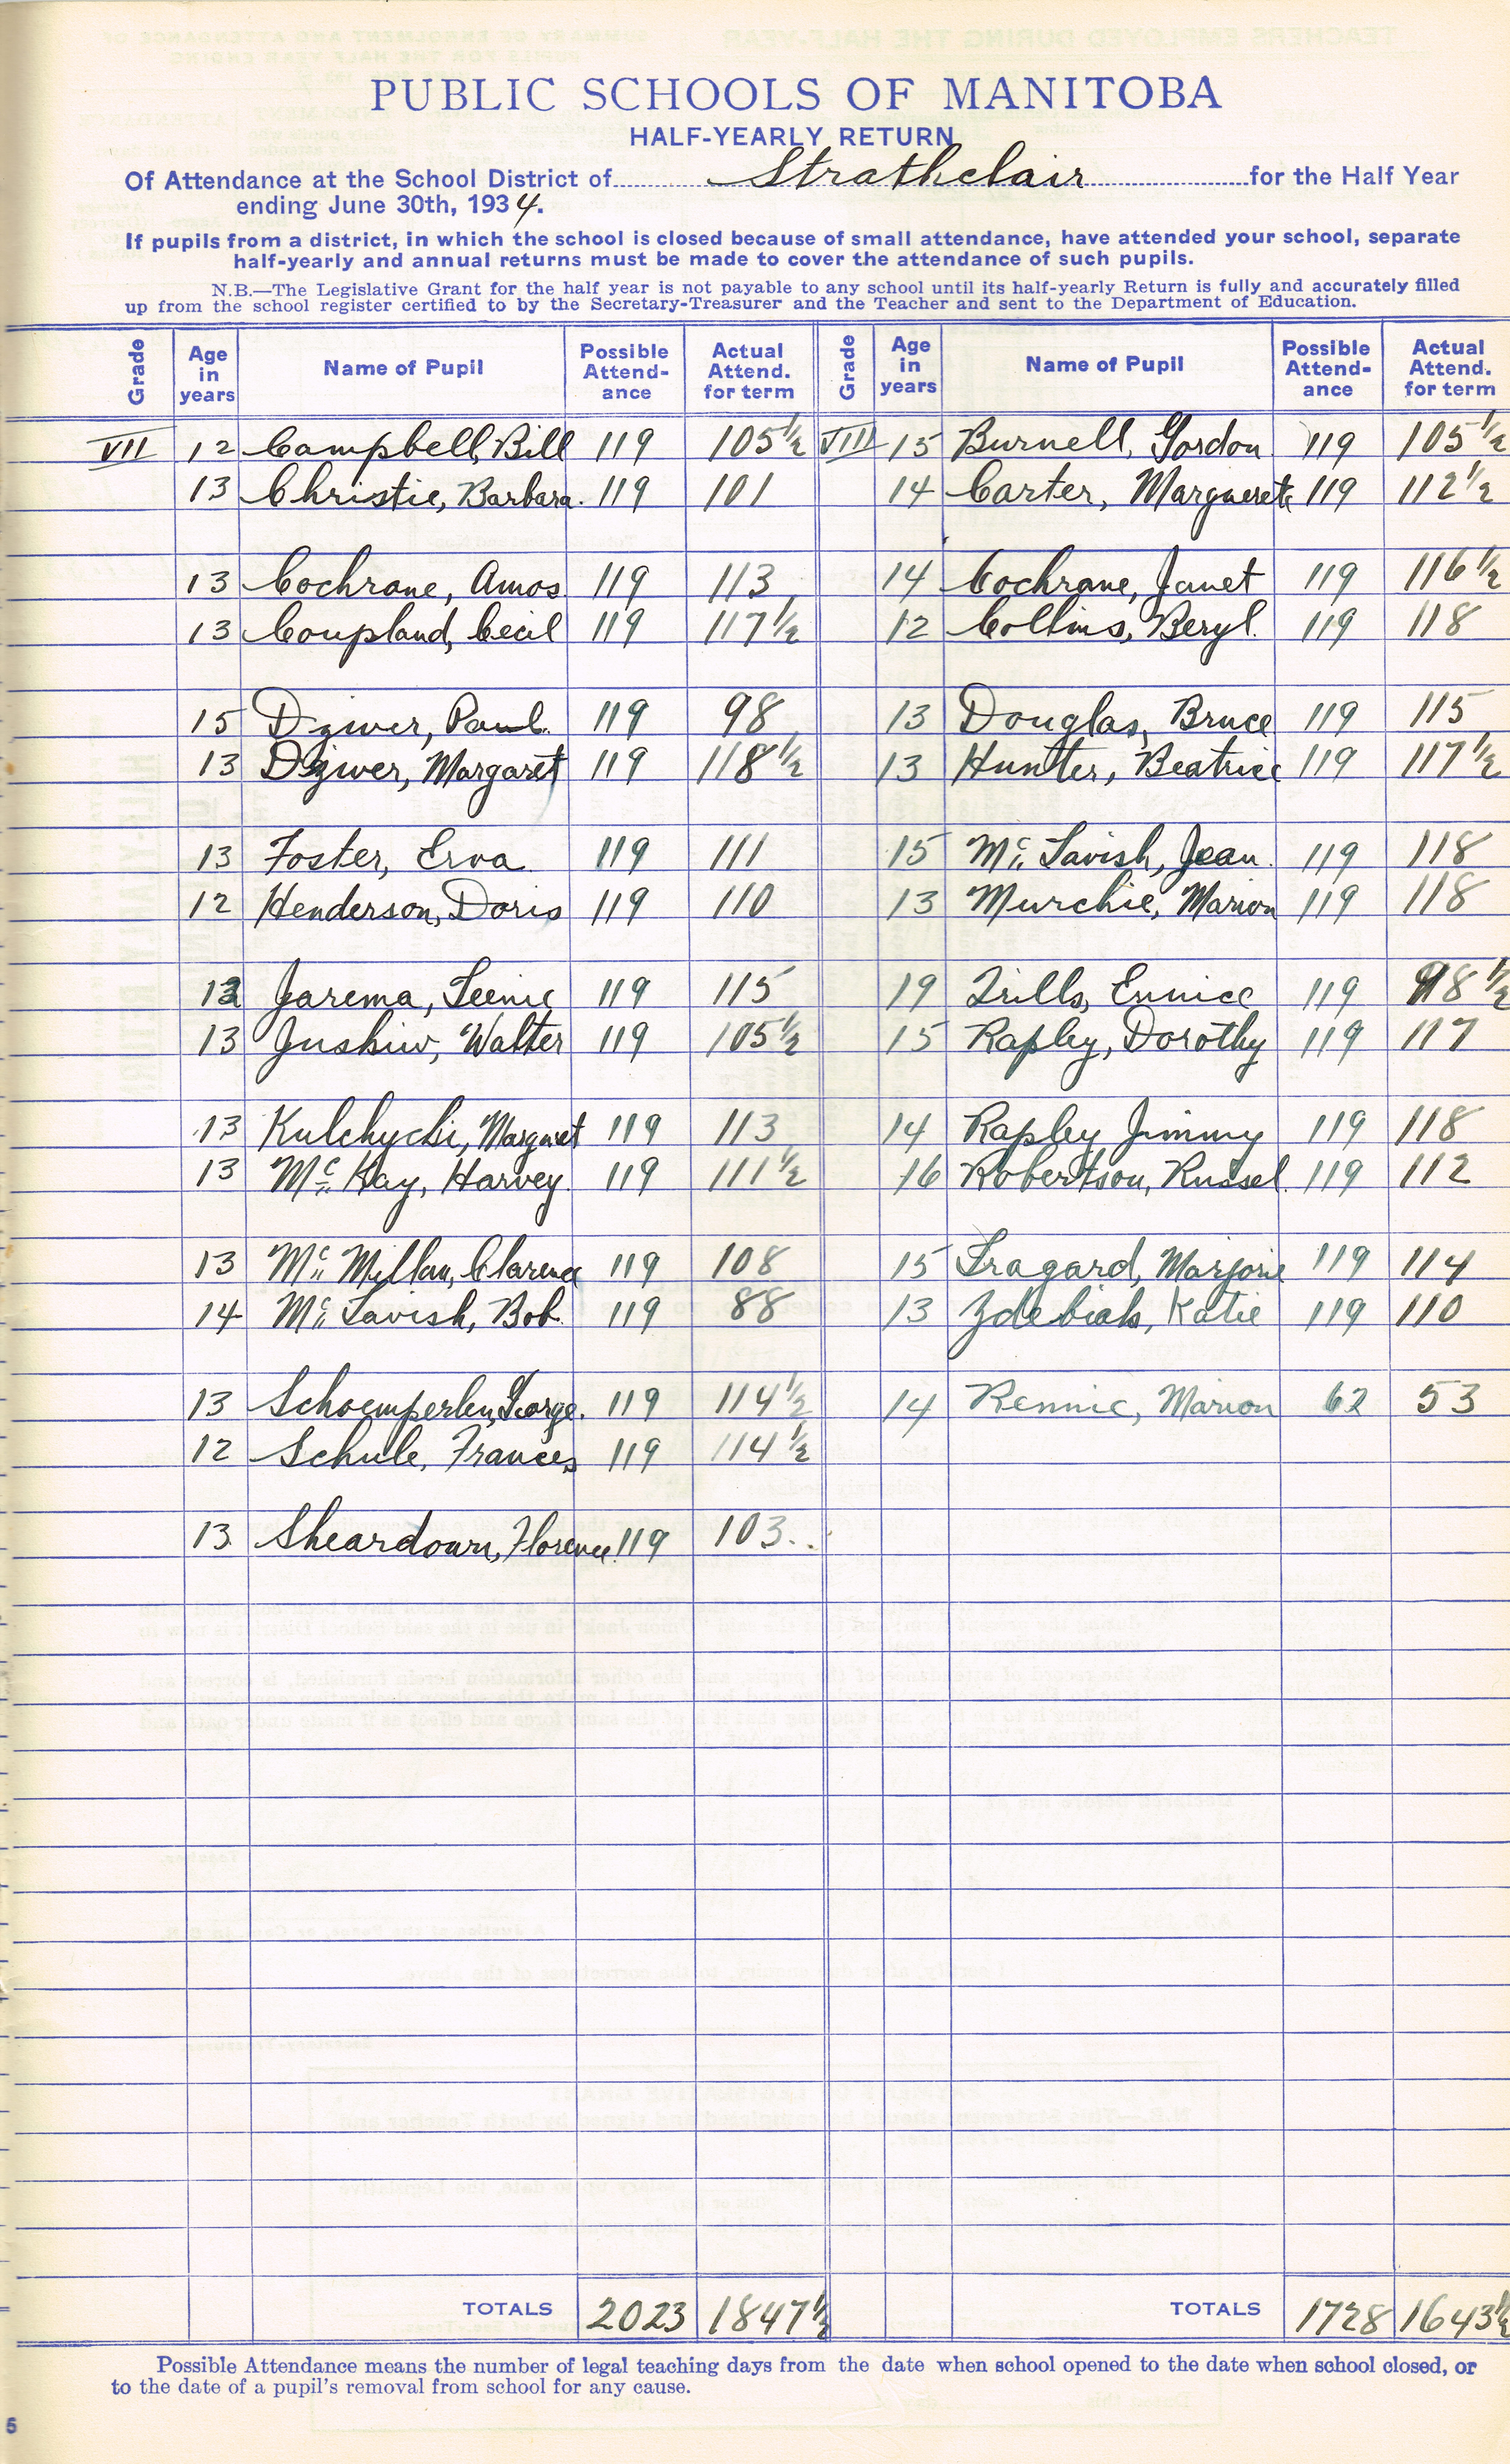 PUBLIC SCHOOLS OF MANITOBA
HALF-YEARLY RETURN
Of Attendance at the School District of Strathclair for the Half Year
ending June 30th, 1934.
If pupils from a district, in which the school is closed because of small attendance, have attended your school, separate
half-yearly and annual returns must be made to cover the attendance of such pupils.
N.B.—The Legislative Grant for the half year is not payable to any school until its half-yearly Return is fully and accurately filled
up from the school register certified to by the Secretary-Treasurer and the Teacher and sent to the Department of Education.
Grade Age in years Name of Pupil Possible Attend-ance Actual Attend. for term Grade Age in years Name of Pupil Possible Attend-ance Actual Attend. for term
VII 12 Campbell, Bill 119 105½ VIII 15 Burnell, Gordon 119 105½
13 Christie, Barbara 119 101 14 Carter, Marguerete 119 112½
13 Cochrane, Amos 119 113 14 Cochrane, Janet 119 116½
13 Coupland, Cecil 119 117½ 12 Collins, Beryl 119 118
15 Dziver, Paul 119 98 13 Douglas, Bruce 119 115
13 Dziver, Margaret 119 118½ 13 Hunter, Beatrice 119 117½
13 Foster, Erva 119 111 15 Mc Tavish, Jean 119 118
12 Henderson, Doris 119 110 13 Murchie, Marion 119 118
12 Jarema, 119 115 19 Trills, Eunice 119 98½
13 Juskiw, Walter 119 105½ 15 Rapley, Dorothy 119 117
13 Kulchycki, Margaret 119 113 14 Rapley Jimmy 119 118
13 Mc Kay, Harvey 119 111½ 16 Robertson, Russel 119 112
13 Mc Millan, Clarence 119 108 15 Tragard, Marjorie 119 114
14 Mc Tavish, Bob 119 88 13 Zdebiak, Katie 119 110
13 Schoemperlen, George 119 114½ 14 Rennie, Marion 62 53
12 Schule, Frances 119 114½
13 Sheardown, Florence 119 103
TOTALS 2023 1847½ TOTALS 1728 1643½
Possible Attendance means the number of legal teaching days from the date when school opened to the date when school closed, or
to the date of a pupil's removal from school for any cause.
5